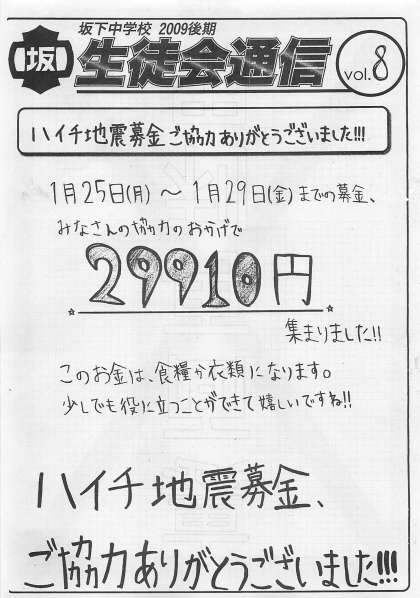 坂下中学校 2009後期
坂 生徒会通信 vol.8
ハイチ地震募金ご協力ありがとうございました!!!
1月25日(月) ～ 1月29日(金)までの募金、
みなさんの協力のおかげで
29910円
集まりました!!
このお金は、食糧や衣類になります。
少しでも役に立つことができて嬉しいですね!!
ハイチ地震募金、
ご協力ありがとうございました!!!